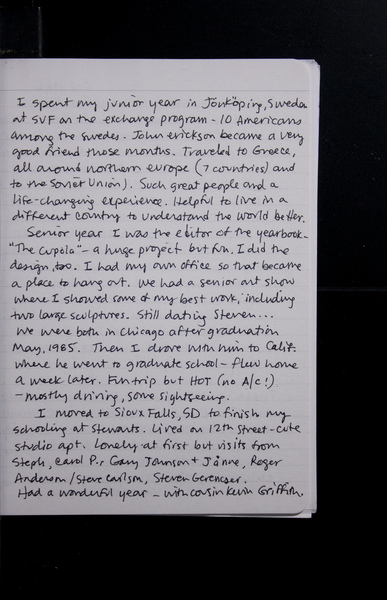 I spent my junior year in Jönköping, Sweden
at SVF on the exchange program - 10 Americans
among the Swedes. John erickson became a very
good friend those months. Traveled to Greece,
all around northern europe (7 countries) and
to the Soviet Union). Such great people and a
life-changing experience. Helpful to live in a
different country to understand the world better.
Senior year I was the editor of the yearbook-
"The Cupola" - a huge project but fun. I did the
design, too. I had my own office so that became
a place to hang out. We had a senior art show
where I showed some of my best work, including
two large sculptures. Still dating Steven...
We were both in Chicago after graduation
May, 1985. Then I drove with him to Calif.
where he went to graduate school - flew home
a week later. Fun trip but HOT (no A/c!)
- mostly driving, some sightseeing.
I moved to Sioux Falls, SD to finish my
schooling at Stewarts. Lived on 12th Street - cute
studio apt. Lonely at first but visits from
Steph, Carol P., Gary Johnson + Janne, Roger
Anderson / Steve Carlson, Steven Gerencser.
Had a wonderful year - with cousin Kevin Griffin.